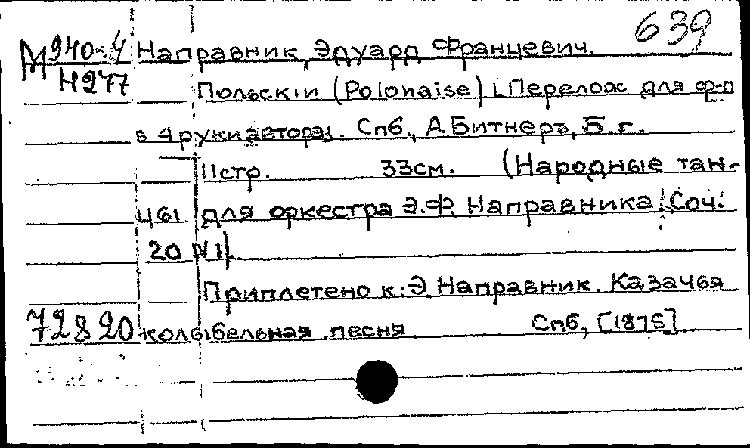 639
М 940-4 Направник, Эдуард Францевич.
Н277
Польскiй (Polonaise). Перелож для ф-п
в 4 руки автора. Спб., А. Битнеръ, Б. г.
11стр. 33см. (Народные тан-
461 для оркестра Э.Ф. Направника. Соч.
20 N1).
Приплетено к: Э. Направник. Казачья
72820 колыбельная песня Спб, [1875].